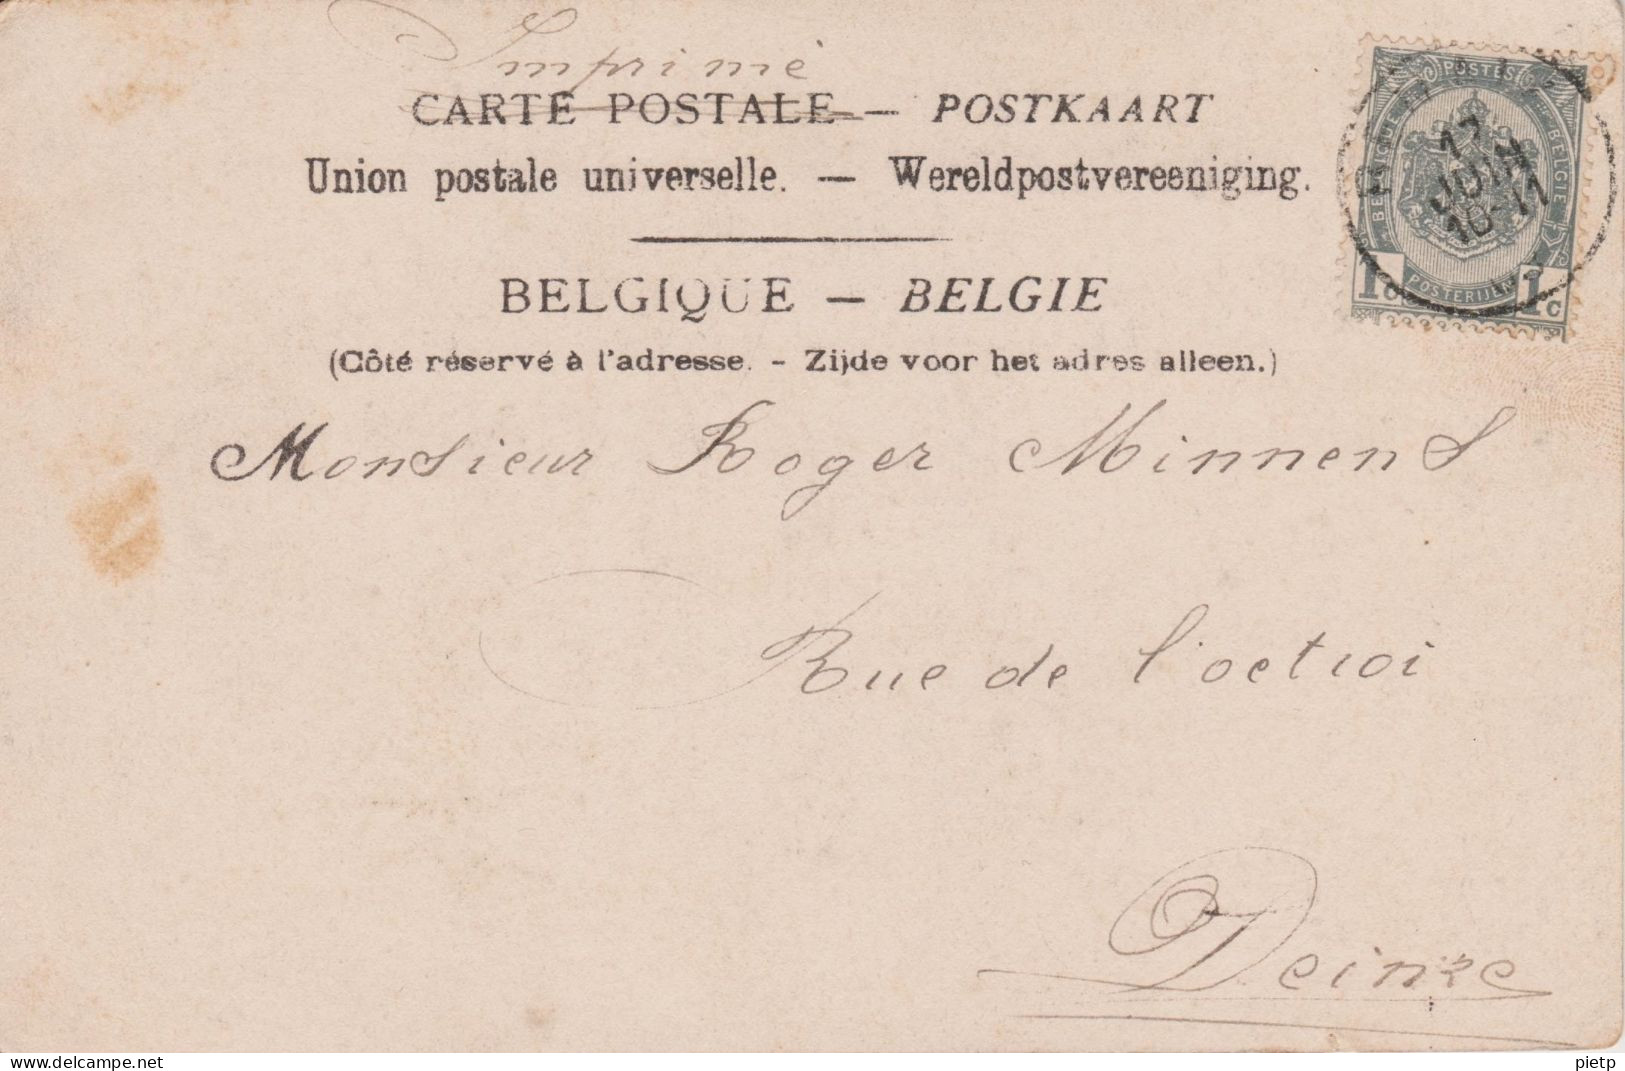 Imprimé
CARTE POSTALE — POSTKAART
Union postale universelle. — Wereldpostvereeniging.
BELGIQUE — BELGIE
(Côté réservé à l'adresse. - Zijde voor het adres alleen.)
POSTES
BELGIQUE
BELGIE
17
JUIN
10-11
1c
POSTERIJEN
1c
Monsieur Roger Minnens
Rue de l'octroi
Deinze
www.delcampe.net
pietp